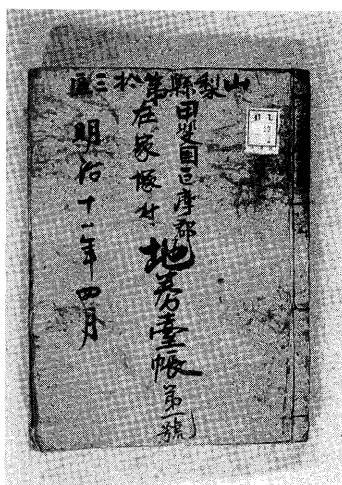 山梨縣第拾三區
甲斐国巨摩郡
在家塚村
地券臺帳第一號
明治十一年四月